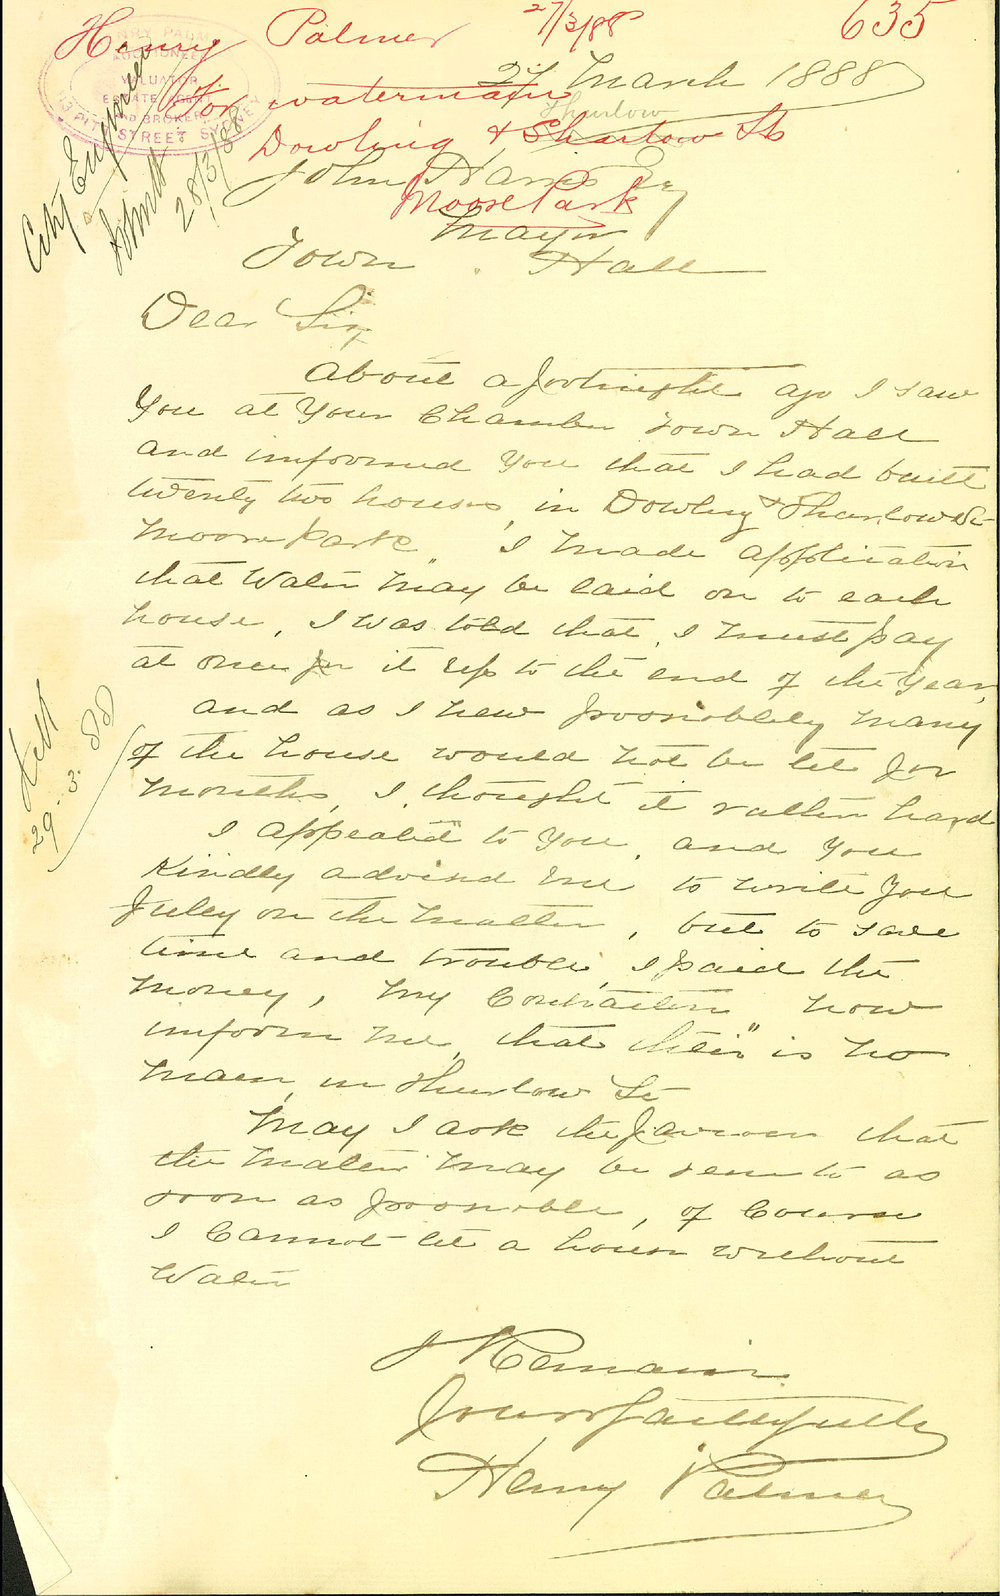 27/3/88
635
Henry Palmer
HENRY PALMER
AUCTIONEER
VALUATOR
ESTATE AGENT
AND BROKER
PITT STREET SYDNEY
27 March 1888
For watermain
Thurlow
Dowling & Sharlow Sts
Moore Park
City Engineer
28/3/88
John Harris Esq
Mayor
Town Hall
Dear Sir
About a fortnight ago I saw
You at Your Chamber Town Hall
and informed You that I had built
twenty two houses, in Dowling & Tharlow St
Moore Park. I made application
that Water may be laid on to each
house, I was told that, I must pay
at once for it up to the end of the Year,
and as I new prossiblely many
of the house would not be let for
months, I thought it rather hard
I appealed to You, and You
Kindly advised me to write You
fully on the matter, but to save
time and trouble, I paid the
money, my Contractor now
inform me, that their is no
main, in Thurlow St
May I ask the favour that
the matter may be seen to as
soon as possible, of Course
I Cannot let a house without
Water
I Remain
Yours faithfully
Henry Palmer
29.3.88